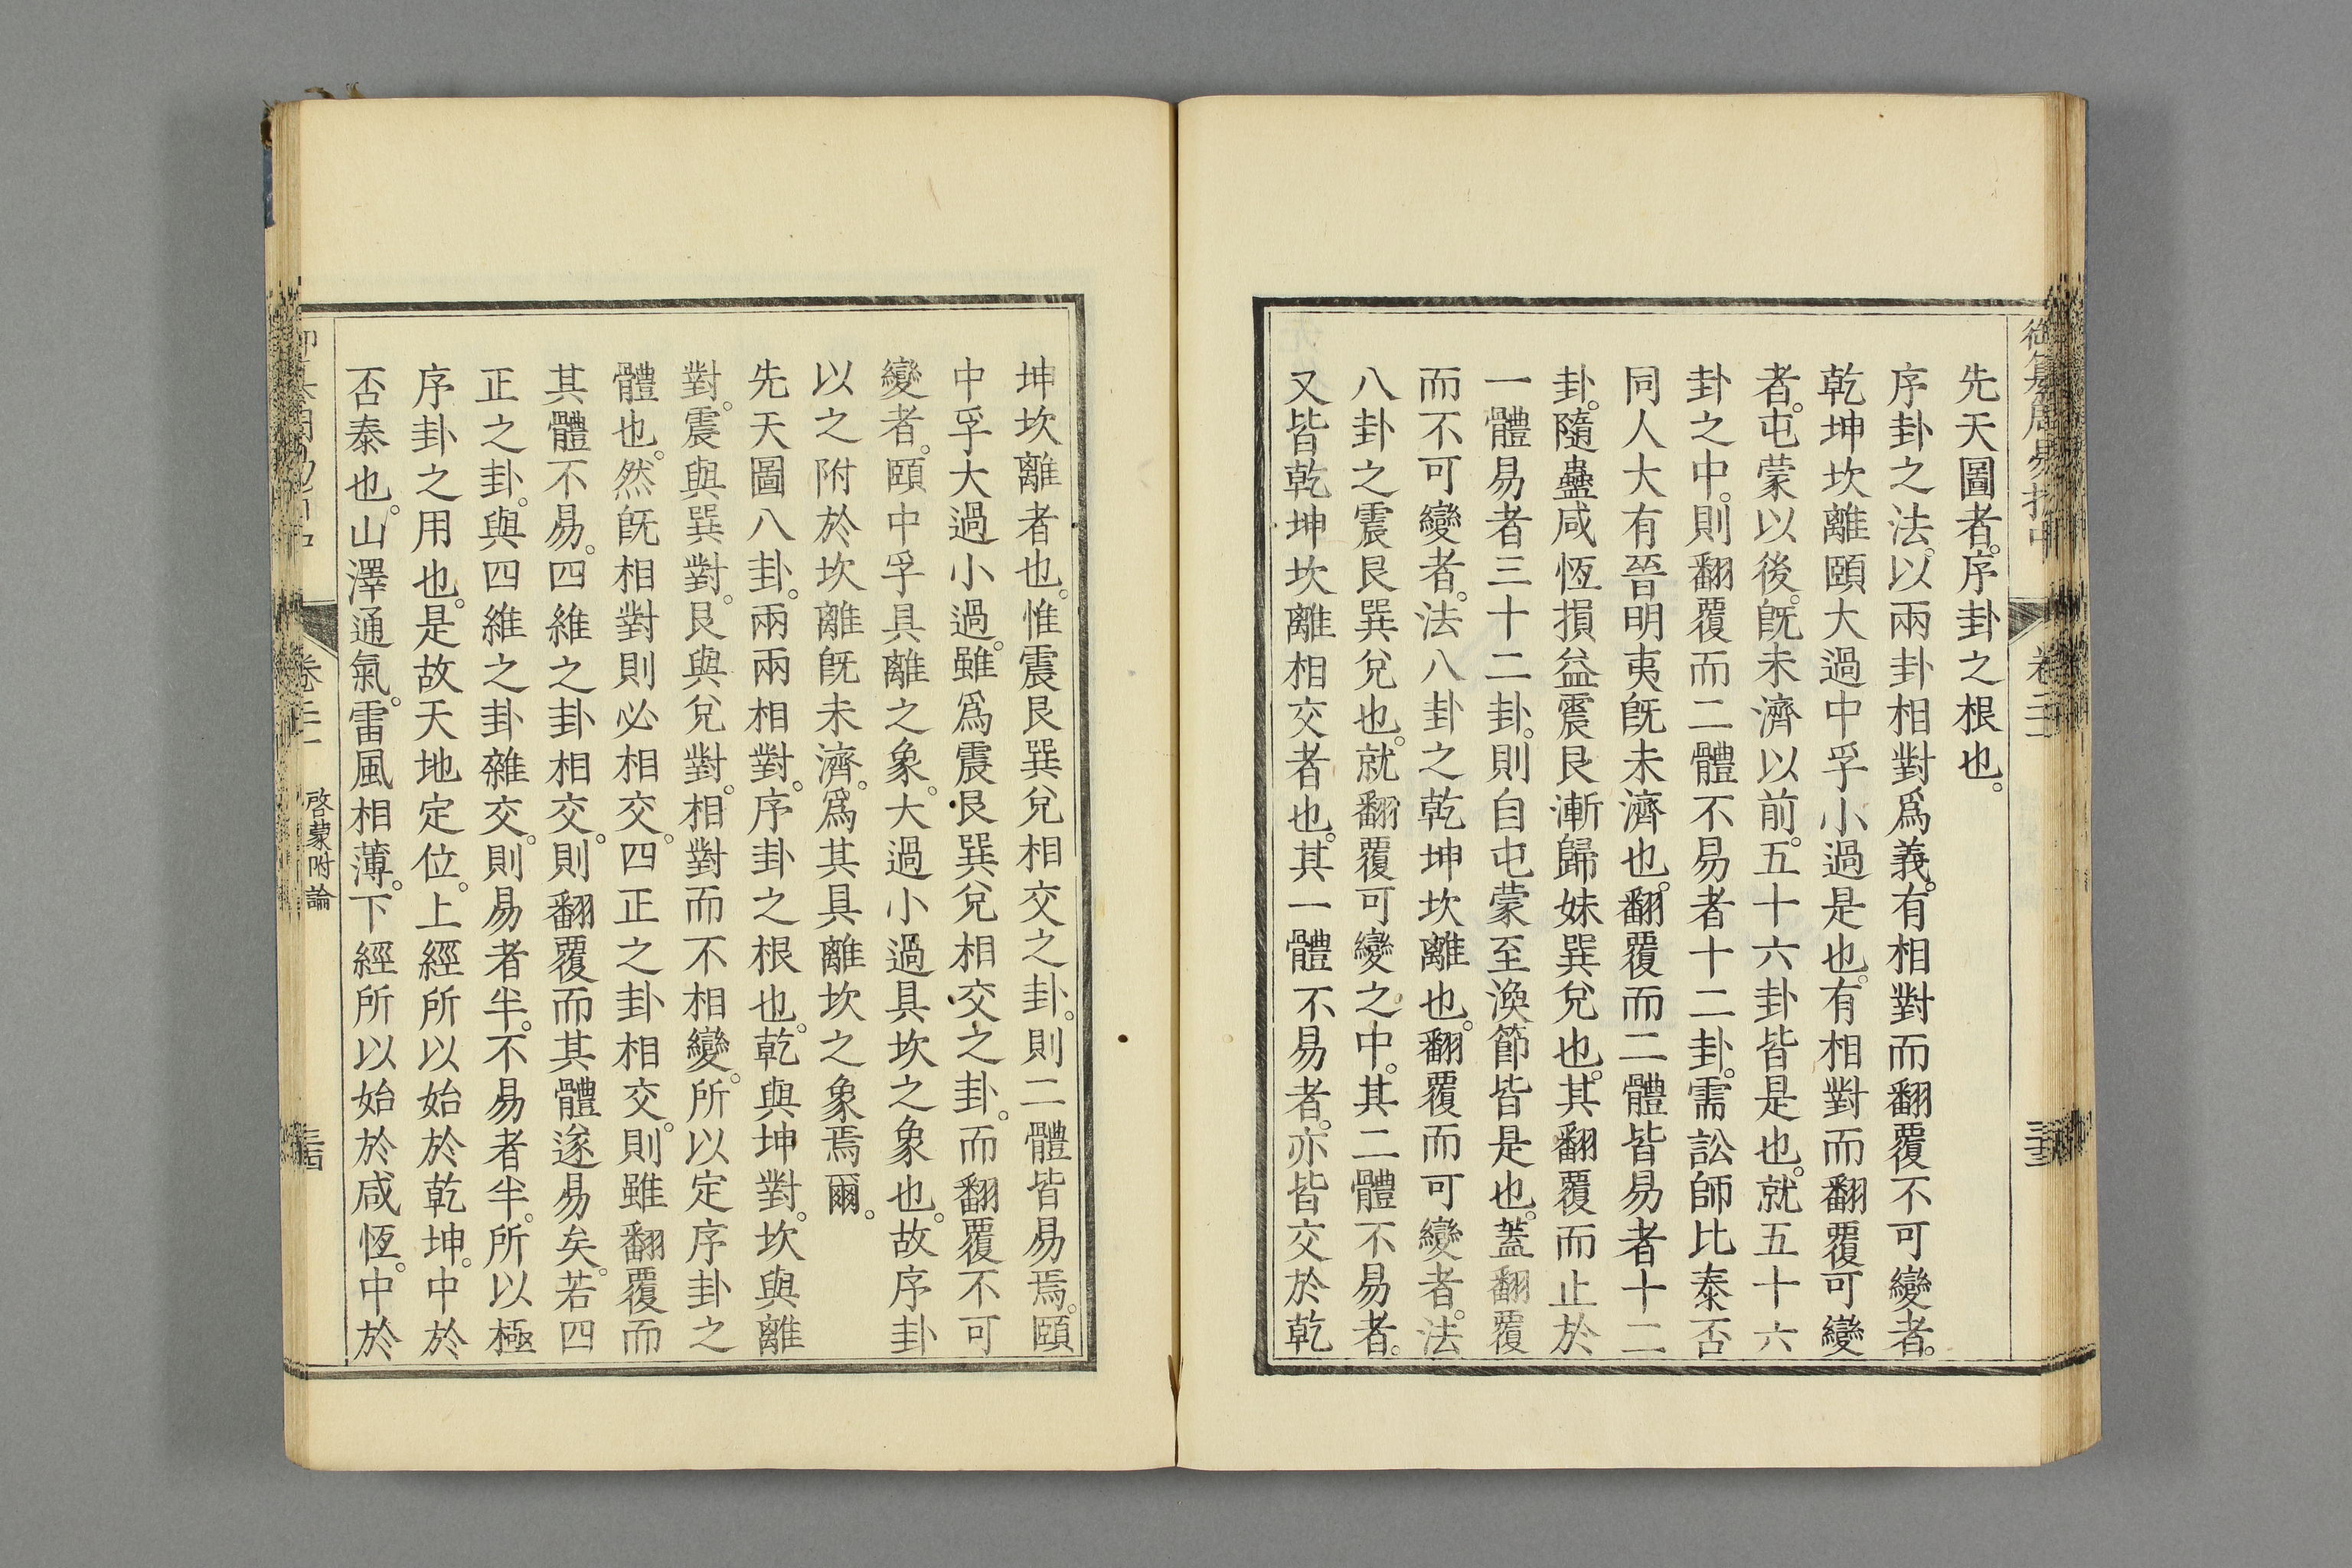 先天圖者。序卦之根也。
序卦之法。以兩卦相對爲義。有相對而翻覆不可變者。
乾坤坎離頤大過中孚小過是也。有相對而翻覆可變
者。屯蒙以後。旣未濟以前。五十六卦皆是也。就五十六
卦之中。則翻覆而二體不易者十二卦。需訟師比泰否
同人大有晉明夷旣未濟也。翻覆而二體皆易者十二
卦。隨蠱咸恆損益震艮漸歸妹巽兌也。其翻覆而止於
一體易者三十二卦。則自屯蒙至渙節皆是也。蓋翻覆
而不可變者。法八卦之乾坤坎離也。翻覆而可變者。法
八卦之震艮巽兌也。就翻覆可變之中。其二體不易者。
又皆乾坤坎離相交者也。其一體不易者。亦皆交於乾
坤坎離者也。惟震艮巽兌相交之卦。則二體皆易焉。頤
中孚大過小過。雖爲震艮巽兌相交之卦。而翻覆不可
變者。頤中孚具離之象。大過小過具坎之象也。故序卦
以之附於坎離旣未濟。爲其具離坎之象焉爾。
先天圖八卦。兩兩相對。序卦之根也。乾與坤對。坎與離
對。震與巽對。艮與兌對。相對而不相變。所以定序卦之
體也。然旣相對則必相交。四正之卦相交。則雖翻覆而
其體不易。四維之卦相交。則翻覆而其體遂易矣。若四
正之卦。與四維之卦雜交。則易者半。不易者半。所以極
序卦之用也。是故天地定位。上經所以始於乾坤。中於
否泰也。山澤通氣。雷風相薄。下經所以始於咸恆。中於
啓蒙附論